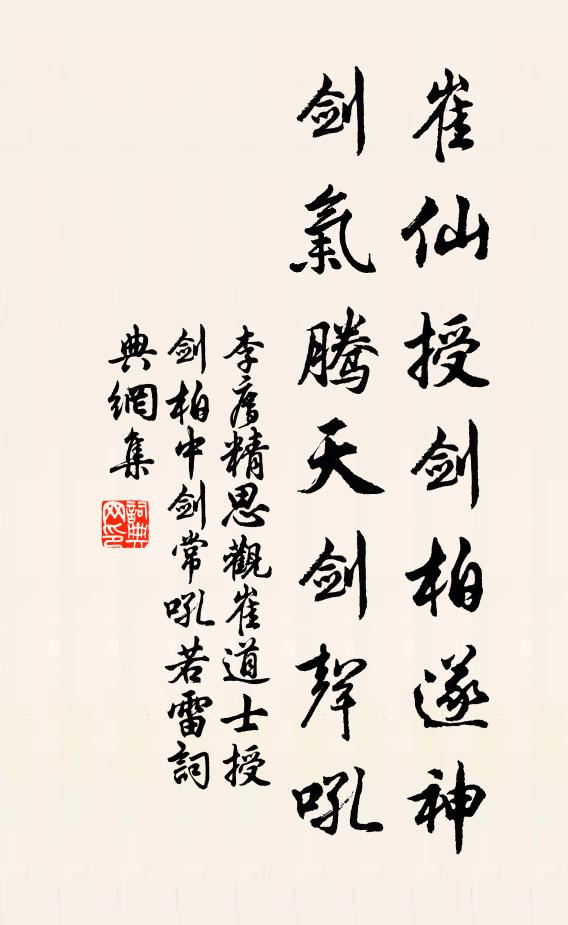 崔仙授剑柏遂神
剑氣腾天剑聲吼
李廌精思觀崔道士授
剑柏中剑常吼若雷詞
典網集
詞典
网印